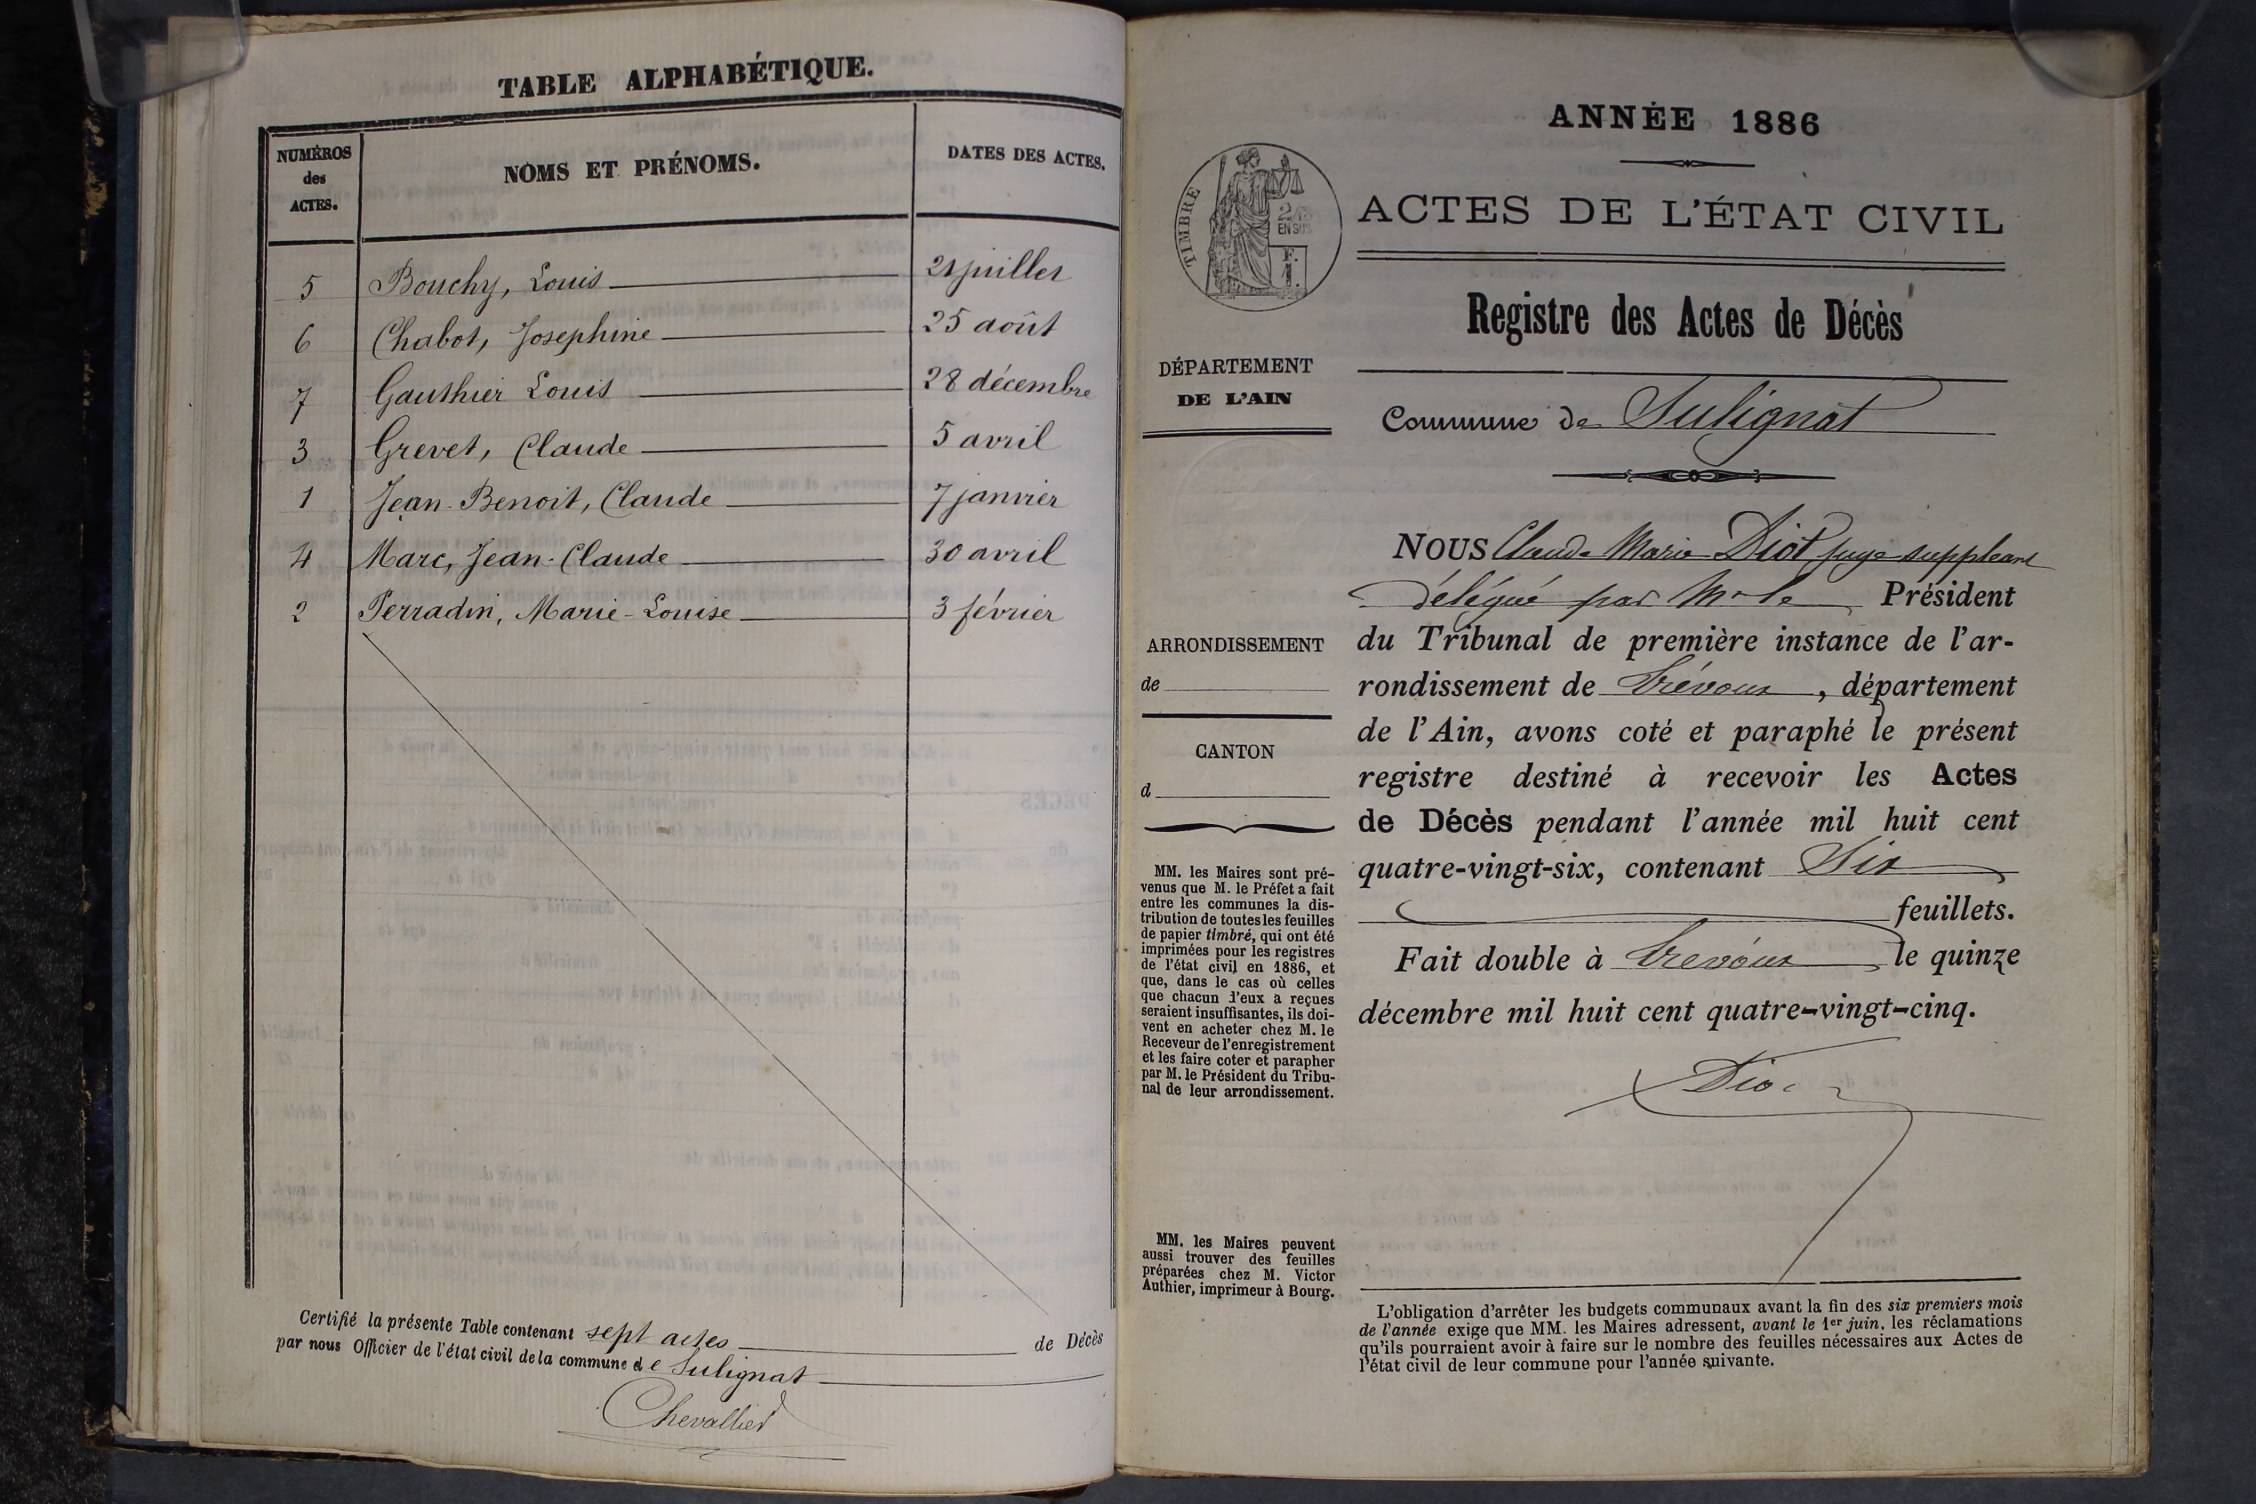 TABLE ALPHABÉTIQUE.
NUMÉROS
des
ACTES.
NOMS ET PRÉNOMS.
DATES DES ACTES.
5 Bouchy, Louis 21 juillet
6 Chabot, Josephine 25 août
7 Gauthier Louis 28 décembre
3 Grevet, Claude 5 avril
1 Jean-Benoit, Claude 7 janvier
4 Marc, Jean-Claude 30 avril
2 Perradin, Marie-Louise 3 février
Certifié la présente Table contenant sept actes de Décès
par nous Officier de l'état civil de la commune de Sulignat
Chevallier
ANNÉE 1886
TIMBRE
2/10
EN SUS
F.
1.
ACTES DE L'ÉTAT CIVIL
Registre des Actes de Décès
DÉPARTEMENT
DE L'AIN
Commune de Sulignat
ARRONDISSEMENT
de
CANTON
d
MM. les Maires sont pré-
venus que M. le Préfet a fait
entre les communes la dis-
tribution de toutes les feuilles
de papier timbré, qui ont été
imprimées pour les registres
de l'état civil en 1886, et
que, dans le cas où celles
que chacun d'eux a reçues
seraient insuffisantes, ils doi-
vent en acheter chez M. le
Receveur de l'enregistrement
et les faire coter et parapher
par M. le Président du Tribu-
nal de leur arrondissement.
MM. les Maires peuvent
aussi trouver des feuilles
préparées chez M. Victor
Authier, imprimeur à Bourg.
NOUS Claude Marie Diot juge suppléant
délégué par Mr le Président
du Tribunal de première instance de l'ar-
rondissement de Trévoux, département
de l'Ain, avons coté et paraphé le présent
registre destiné à recevoir les Actes
de Décès pendant l'année mil huit cent
quatre-vingt-six, contenant Six
feuillets.
Fait double à Trévoux le quinze
décembre mil huit cent quatre-vingt-cinq.
Diot
L'obligation d'arrêter les budgets communaux avant la fin des six premiers mois
de l'année exige que MM. les Maires adressent, avant le 1er juin, les réclamations
qu'ils pourraient avoir à faire sur le nombre des feuilles nécessaires aux Actes de
l'état civil de leur commune pour l'année suivante.